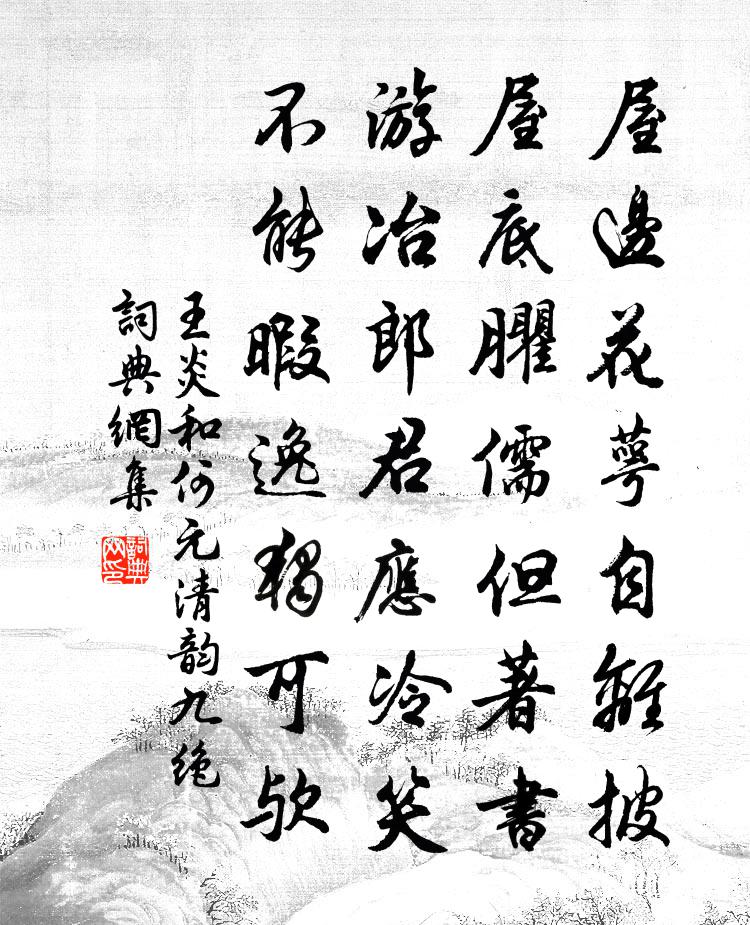 屋邊花萼自離披
屋底臞儒但著書
游冶郎君應冷笑
不能暇逸獨可欤
王炎和何元清韵九绝
詞典網集
詞典网印